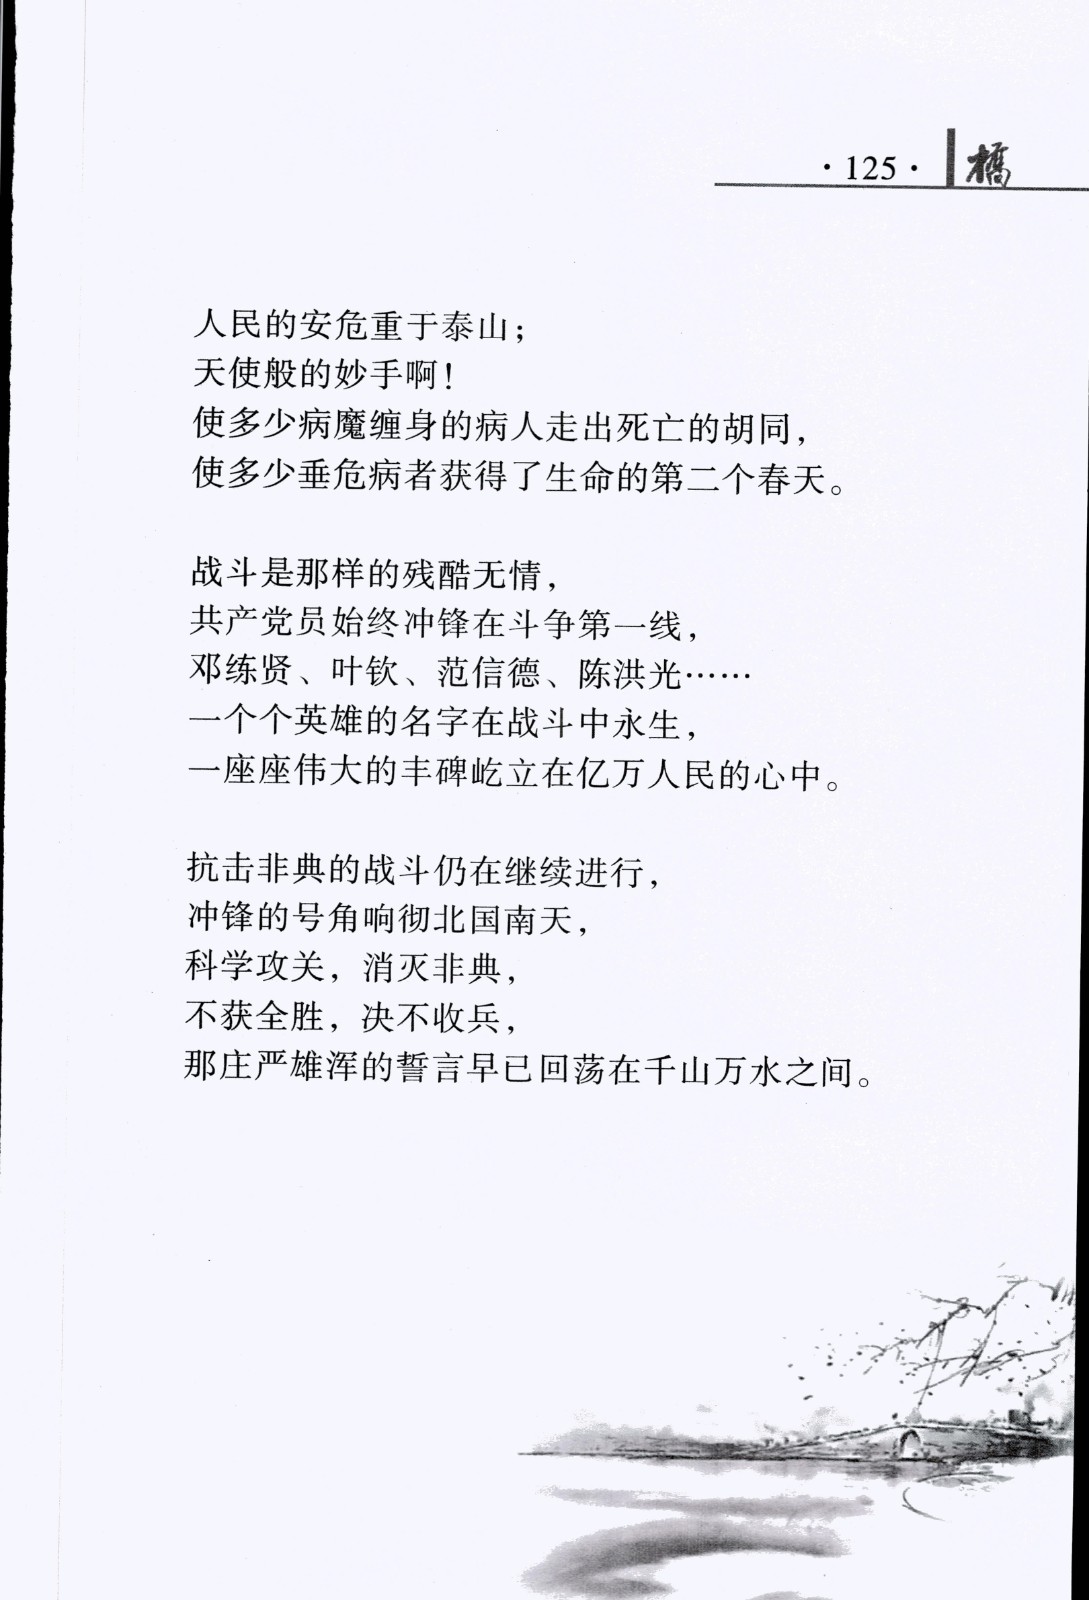 ·125· 橋
人民的安危重于泰山；
天使般的妙手啊！
使多少病魔缠身的病人走出死亡的胡同，
使多少垂危病者获得了生命的第二个春天。
战斗是那样的残酷无情，
共产党员始终冲锋在斗争第一线，
邓练贤、叶钦、范信德、陈洪光……
一个个英雄的名字在战斗中永生，
一座座伟大的丰碑屹立在亿万人民的心中。
抗击非典的战斗仍在继续进行，
冲锋的号角响彻北国南天，
科学攻关，消灭非典，
不获全胜，决不收兵，
那庄严雄浑的誓言早已回荡在千山万水之间。